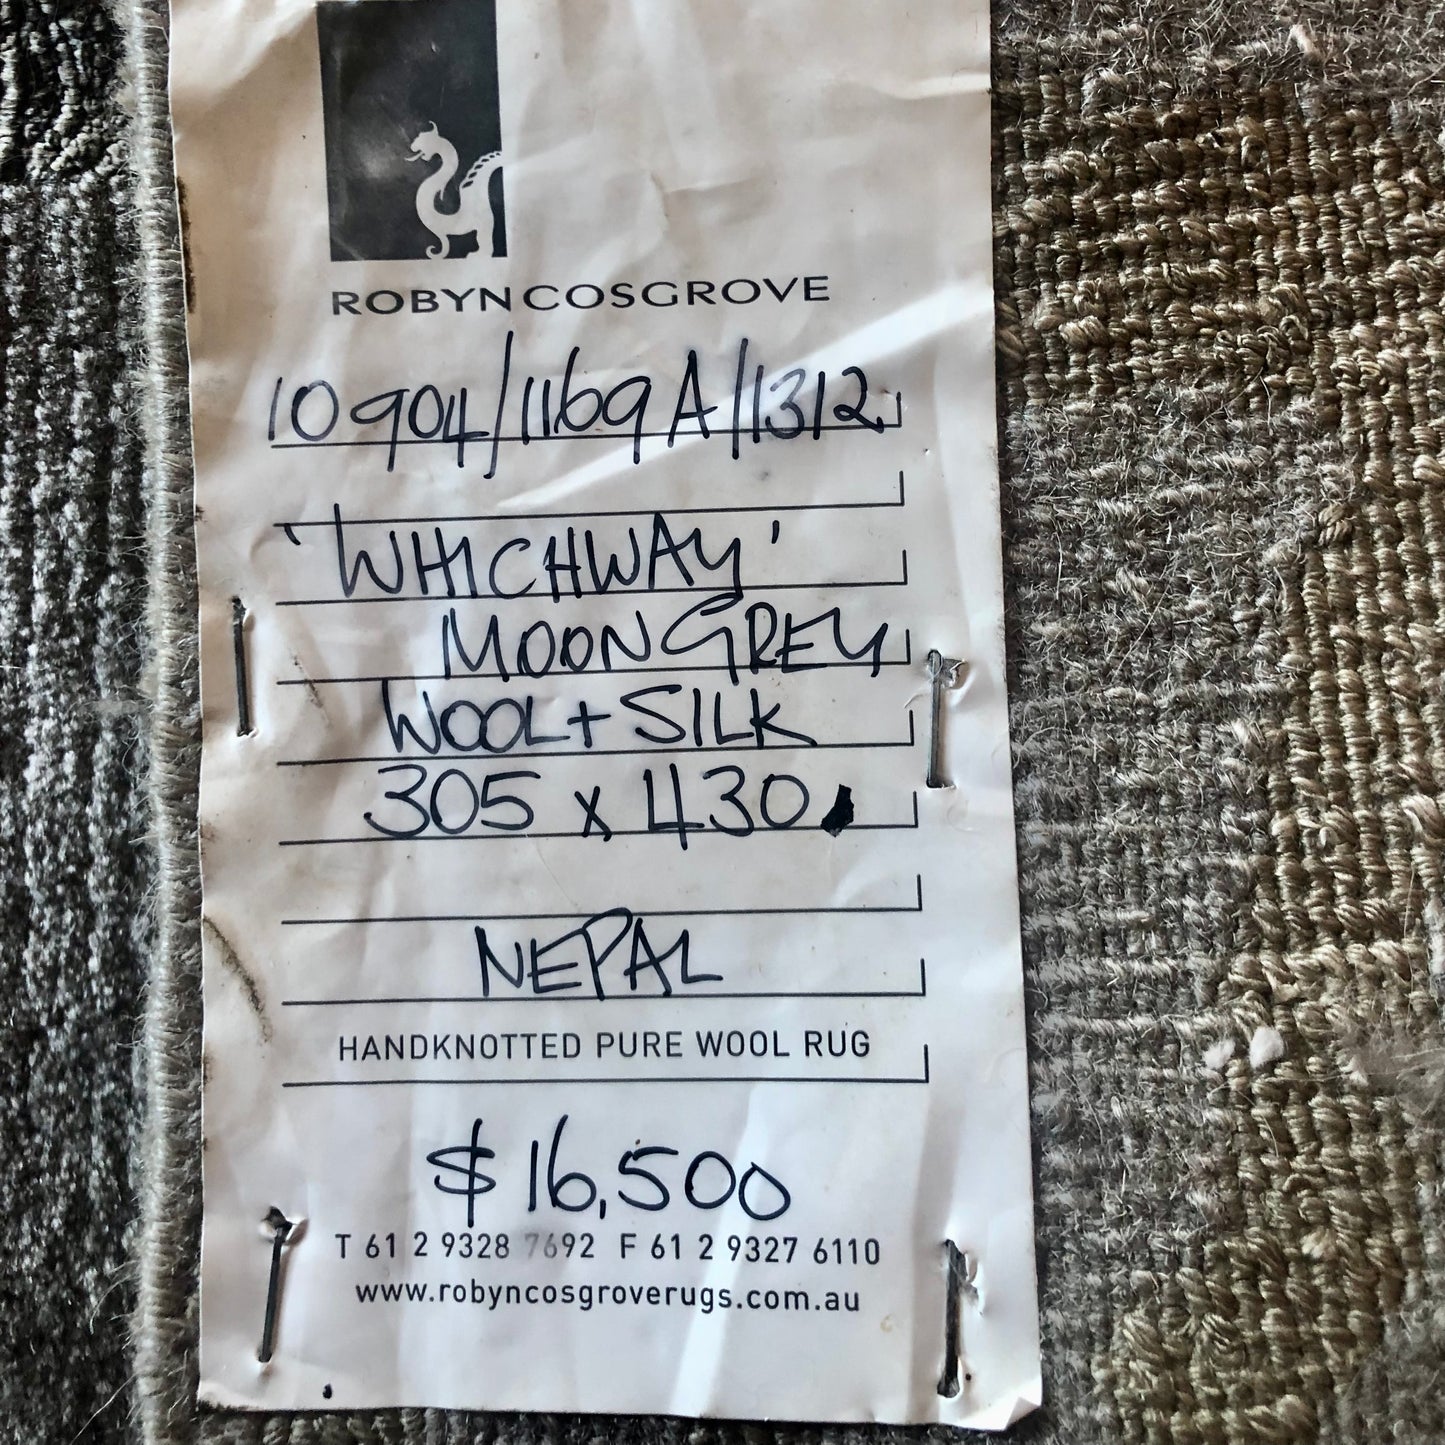 ROBYN COSGROVE
10904/1169A/1312
'WHICHWAY'
MOONGREY
WOOL + SILK
305 x 430
NEPAL
HANDKNOTTED PURE WOOL RUG
$16,500
T 61 2 9328 7692 F 61 2 9327 6110
www.robyncosgroverugs.com.au